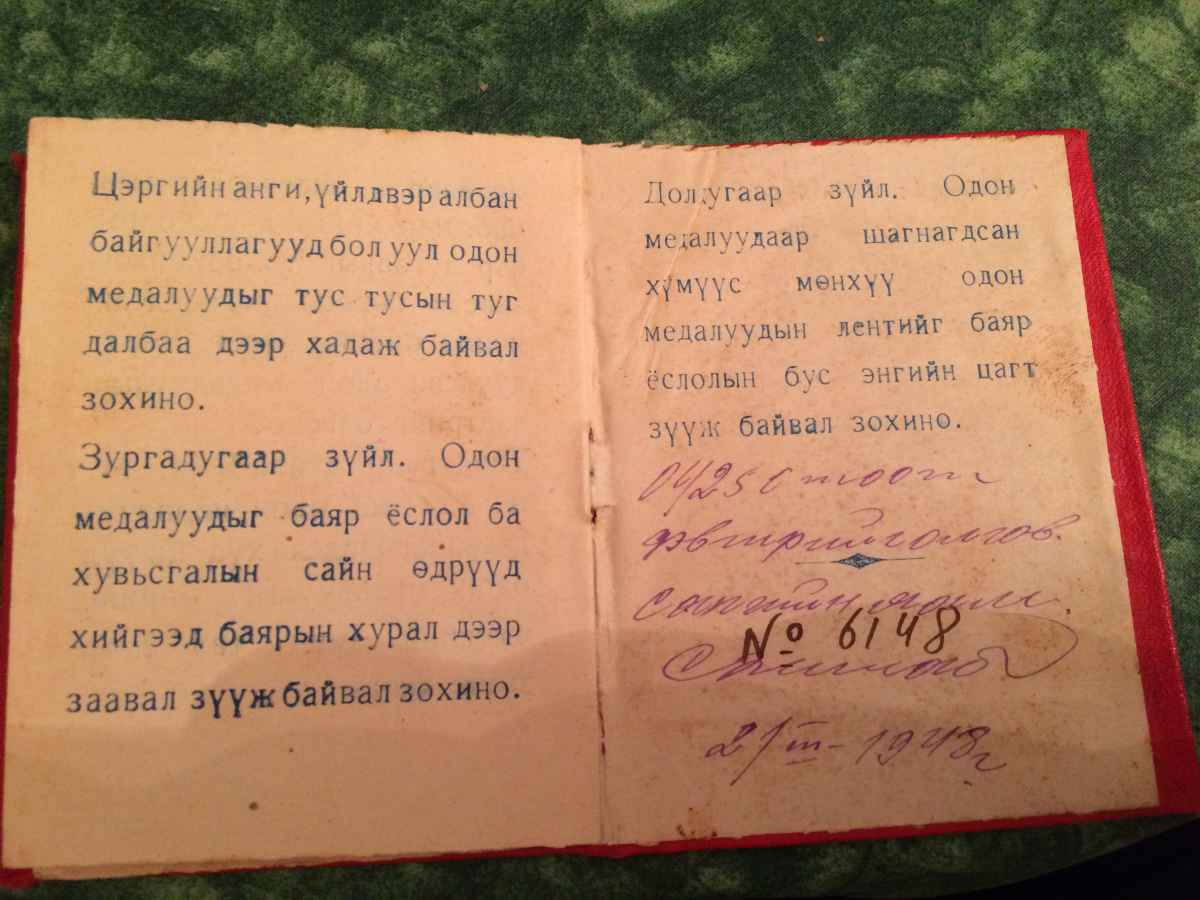 Цэргийн анги, үйлдвэр албан
байгууллагууд бол уул одон
медалуудыг тус тусын туг
далбаа дээр хадаж байвал
зохино.
Зургадугаар зүйл. Одон
медалуудыг баяр ёслол ба
хувьсгалын сайн өдрүүд
хийгээд баярын хурал дээр
заавал зүүж байвал зохино.
Долдугаар зүйл. Одон
медалуудаар шагнагдсан
хүмүүс мөнхүү одон
медалуудын лентийг баяр
ёслолын бус энгийн цагт
зүүж байвал зохино.
тоот
дэвтрийг олгов.
№ 6148
21/III - 1948 г